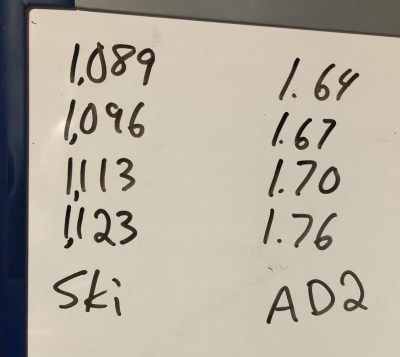 1,089 1.64
1,096 1.67
1,113 1.70
1,123 1.76
Ski AD2